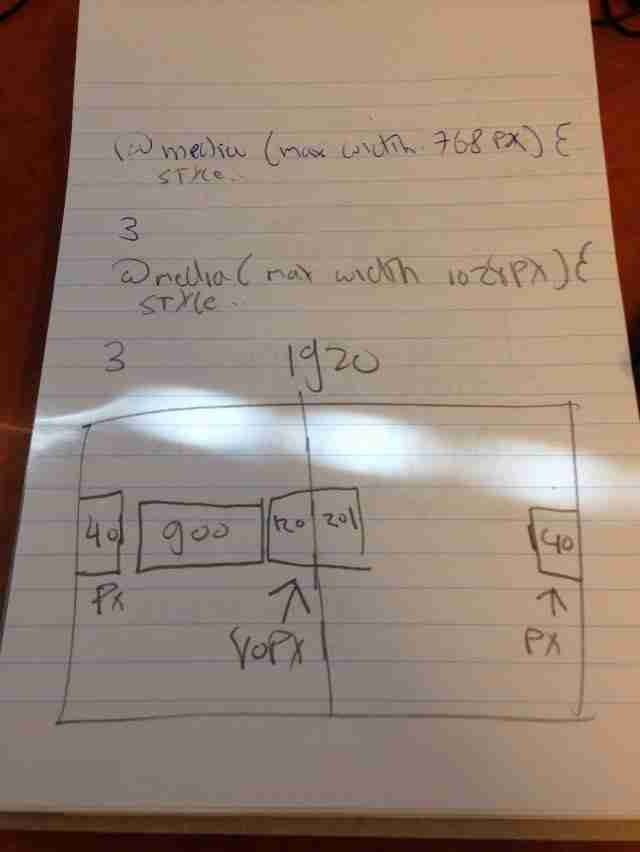 @media (max width 768 PX) {
STYLE..
}
@media (max width 1024PX) {
STYLE..
}
1920
40 900 20 20 40
PX 40PX PX